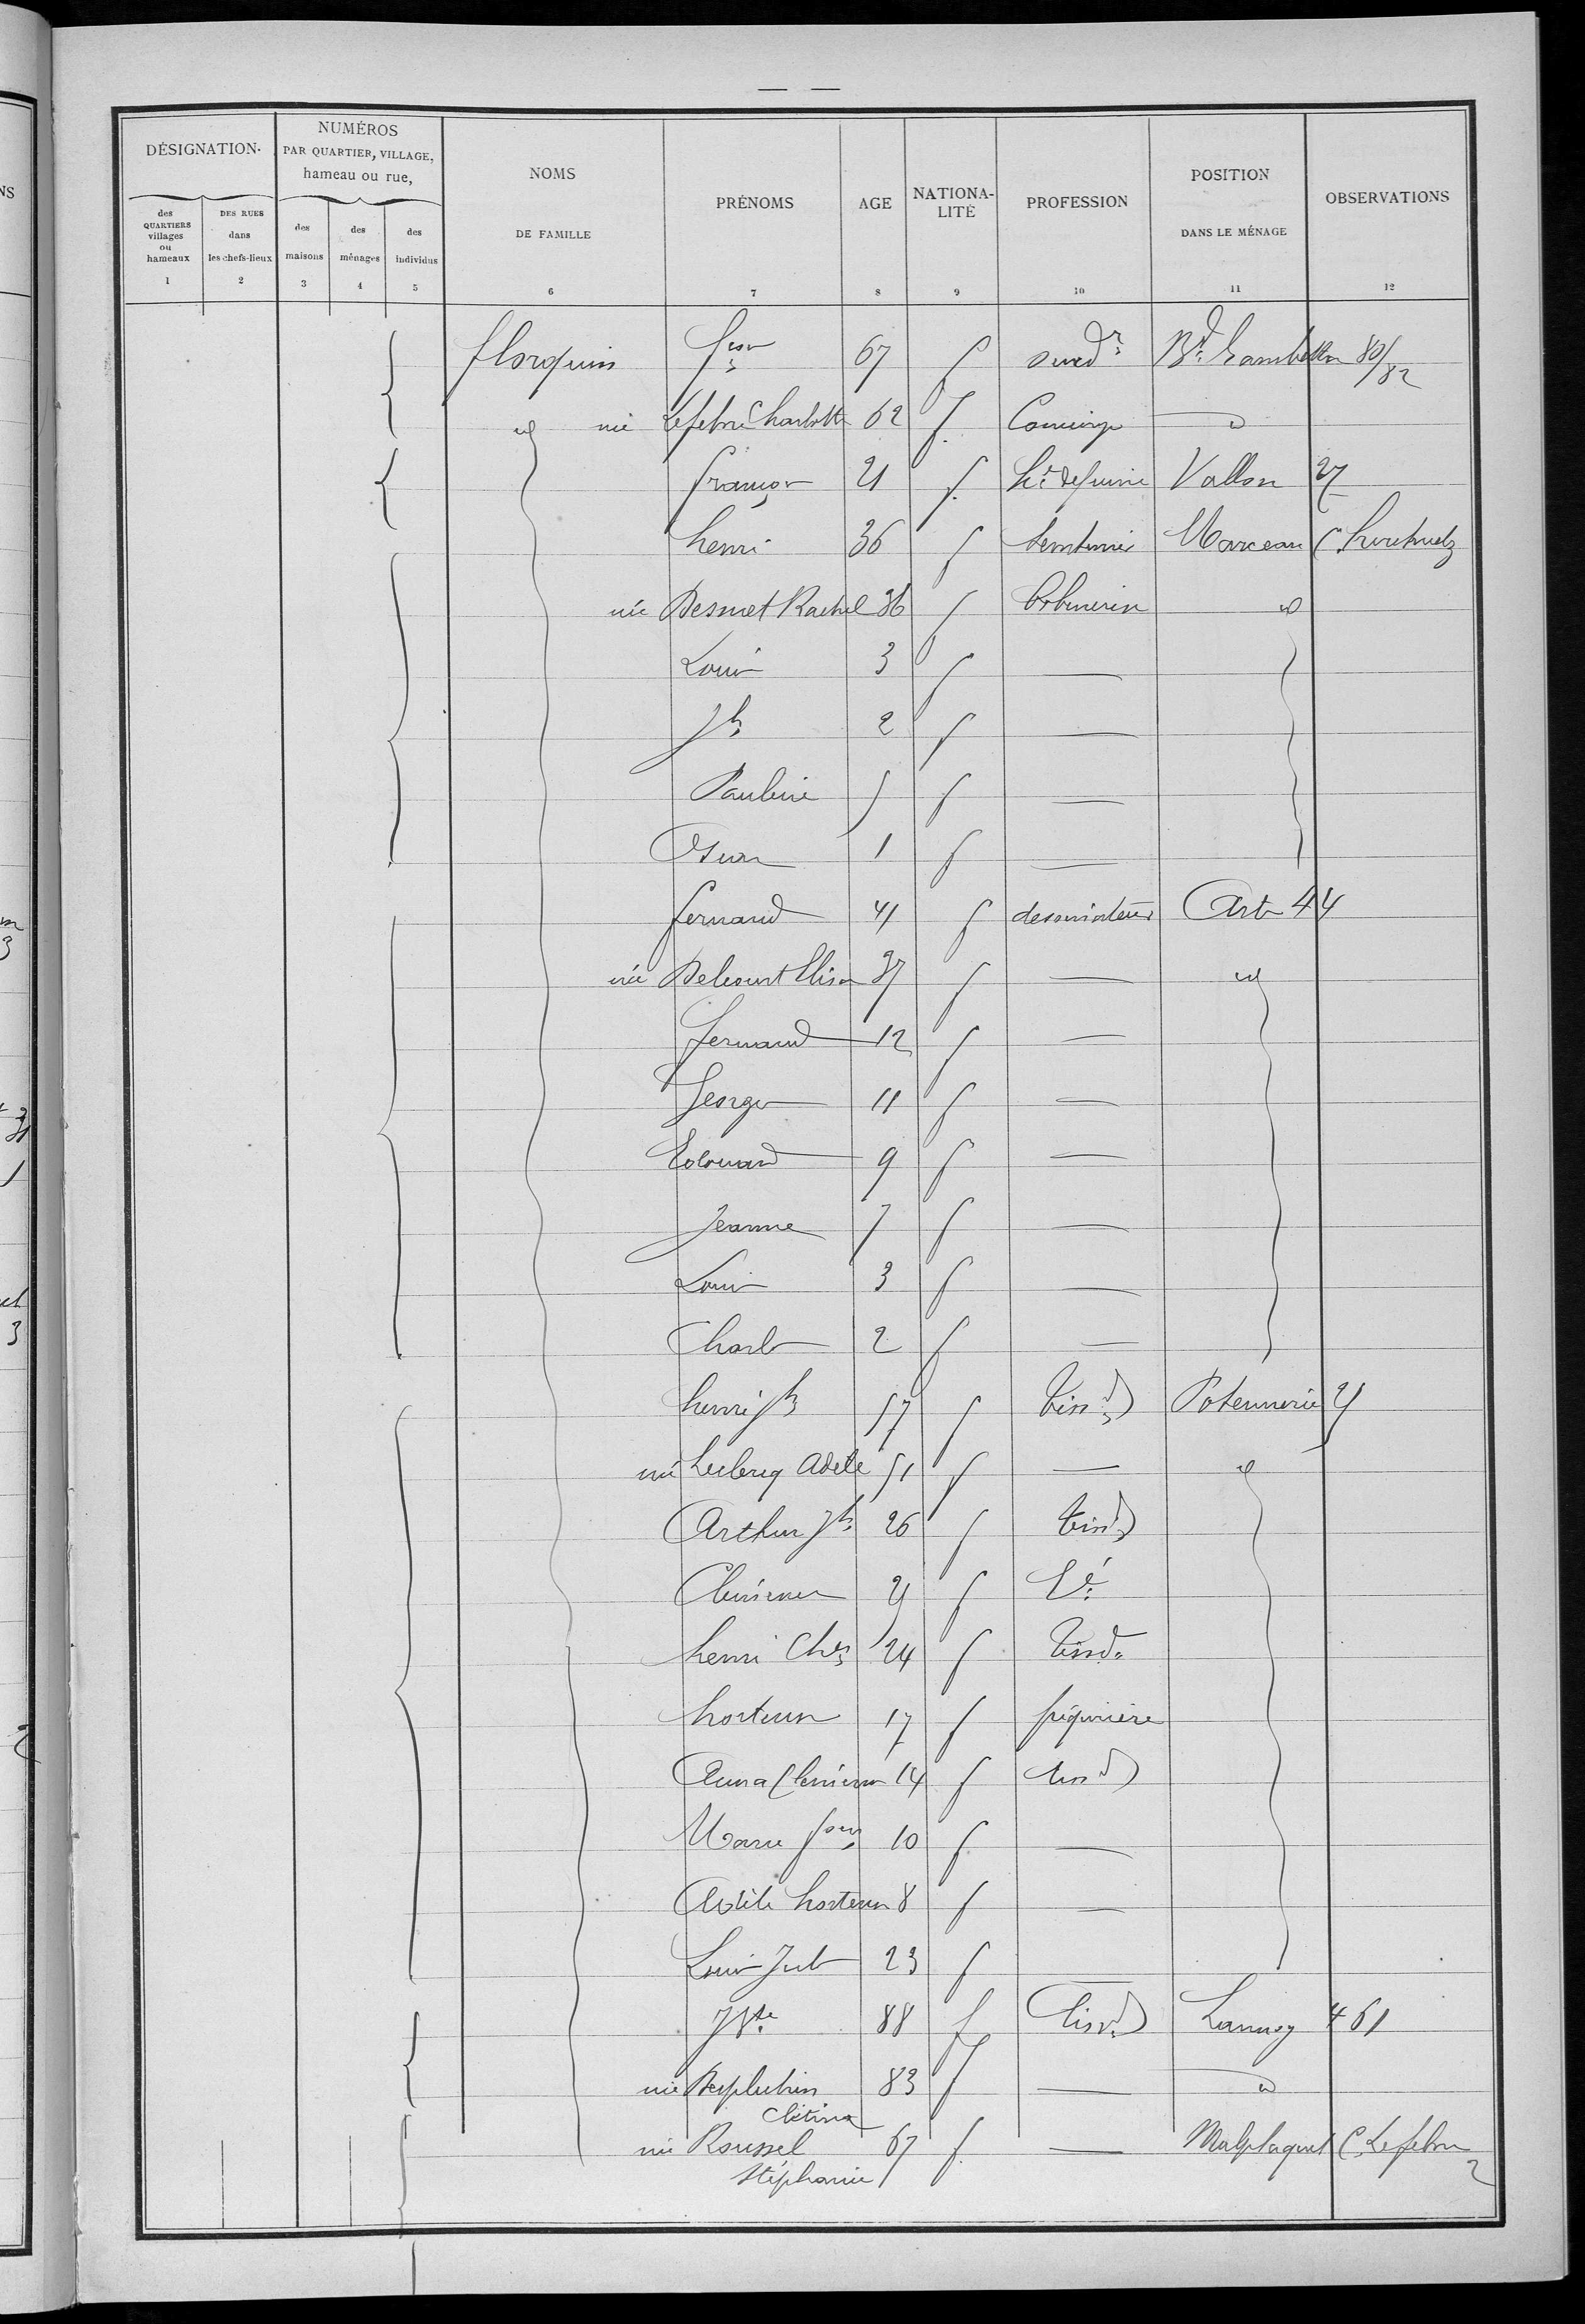 DÉSIGNATION
NUMÉROS PAR QUARTIER, VILLAGE, hameau ou rue,
NOMS DE FAMILLE
PRÉNOMS
AGE
NATIONALITÉ
PROFESSION
POSITION DANS LE MÉNAGE
OBSERVATIONS
des QUARTIERS villages ou hameaux
DES RUES dans les chefs-lieux
des maisons
des ménages
des individus
1 2 3 4 5 6 7 8 9 10 11 12
florquin fçois 67 f Bd Gambetta 80/82
id née Lefebvre Charlotte 62 f Concierge id
françois 21 f Vallon 27
henri 36 f Marceau C.
née Desmet Rachel 36 f Bobineuse id
Louis 3 f —
Jh 2 f —
Pauline 5 f —
1 f —
fernand 41 f Arts 44
née Delcourt Elisa 37 f — id
fernand 12 f —
Georges 11 f —
Edouard 9 f —
Jeanne 7 f —
Louis 3 f —
Charles 2 f —
henri Jh 57 f tissd Potennerie 21
née Leclercq Adele 51 f — id
Arthur Jh 26 f tissd
Clémence 21 f
henri Chs 24 f tissd
hortense 17 f piqurière
Anna Clémence 14 f tissd
Marie 10 f —
Adèle hortense 8 f —
Louis Jules 23 f —
J Bte 88 f tissd Lannoy 461
née 83 f — id
née Roussel Stéphanie 67 f — Malplaquet C. Lefebvre 2